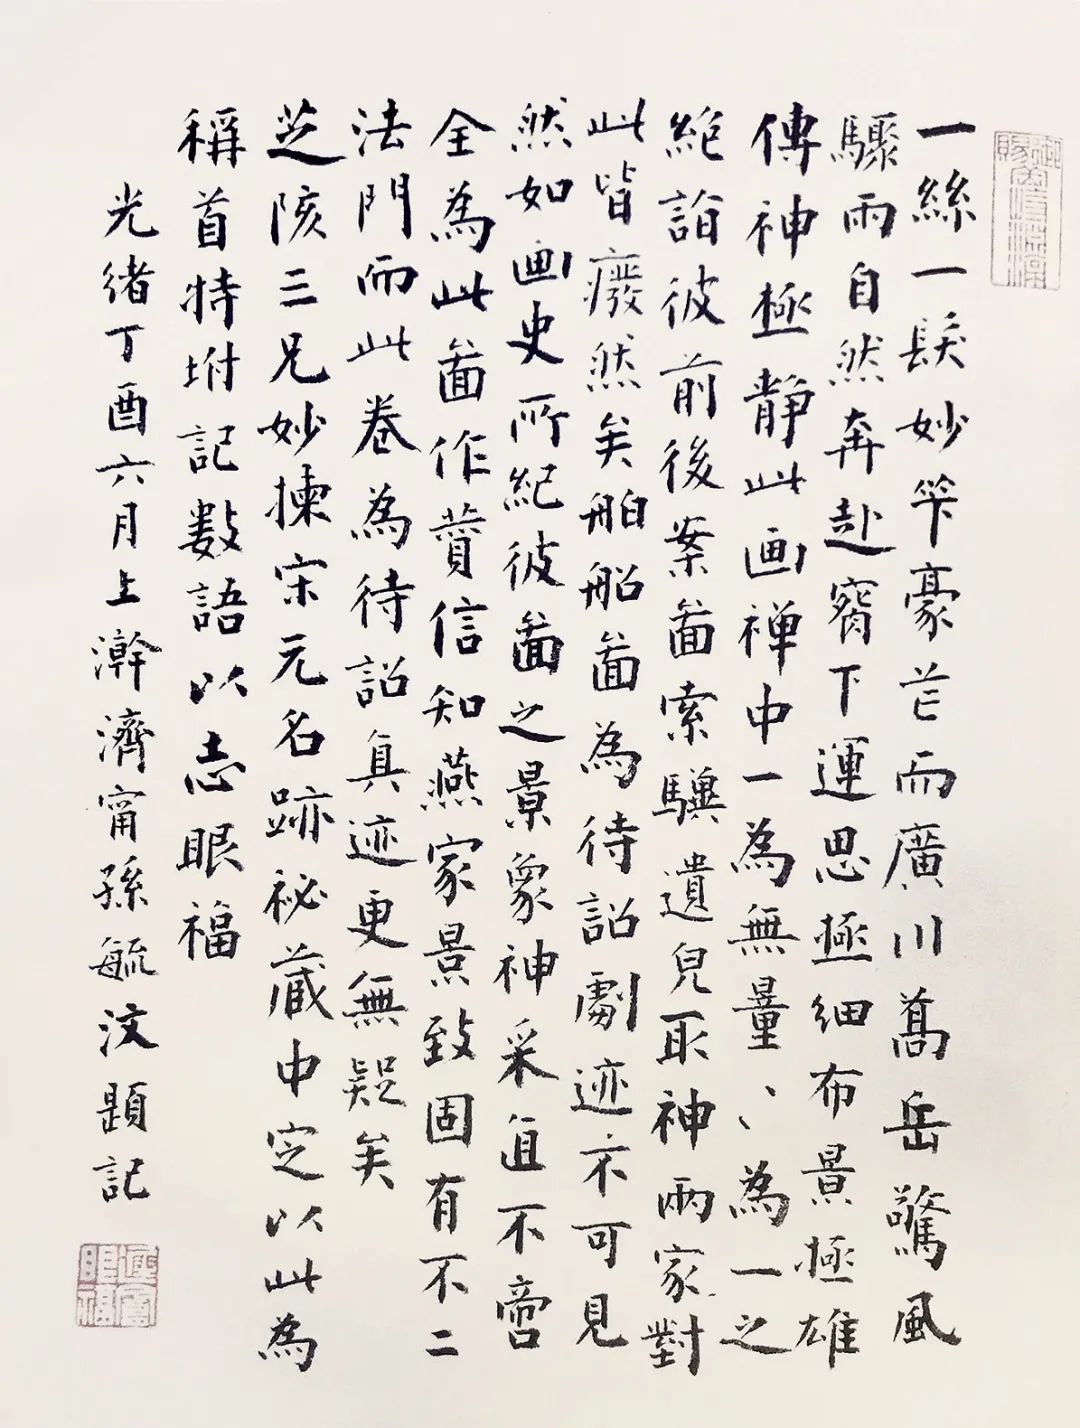 一絲一髮妙竿豪芒而廣川髙岳驚風
驟雨自然奔赴窾下運思極細布景極雄
傳神極靜此画禅中一為無量、、為一之
絕詣彼前後案啚索驥遺皃取神兩家對
此皆廢然矣舶船啚為待詔劇迹不可見
然如画史所紀彼啚之景象神采直不啻
全為此啚作贊信知燕家景致固有不二
法門而此卷為待詔真迹更無疑矣
芝陔三兄妙揀宋元名跡祕藏中定以此為
稱首特坿記數語以志眼福
光緒丁酉六月上澣濟甯孫毓汶題記